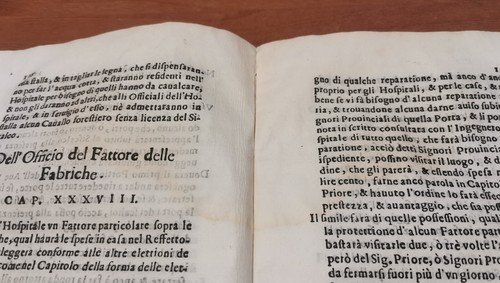 na stalla, & in tagliar le legna, che si dispensaran-
no per far l'acqua cotta, & staranno residenti nell'
Hospitale per bisogno di quelli hanno da caualcare,
& non gli daranno ad altri, che alli Officiali dell'Ho-
spitale, & in seruigio d'esso, nè admetteranno in
stalla alcun Cauallo forestiero senza licenza del Si-
Dell'Officio del Fattore delle
Fabriche.
CAP. XXXVIII.
l'Hospitale vn Fattore particolare sopra le
che, qual haurà le spese in casa nel Reffetto-
leggerà conforme alle altre elettioni de
come nel Capitolo della forma delle elet-
gno di qualche reparatione, mà anco d'an
proprio per gli Hospitali, & per le case, &
bene se vi fà bisogno d'alcuna reparatione
ria, & trouandone alcuna darne auiso subit
gnori Prouinciali di quella Porta, & li po
nota in scritto consultata con l'Ingegne
spitale di tutto quello, che farà bisogn
paratione, acciò detti Signori Prouinci
ispediente, possino visitar il luogo, & d
dine, che gli parerà, & essendo spesa n
lire cento, farne anco parola in Capito
Priore, & hauuto l'ordine lo farà essec
prestezza, & auantaggio, che sia poss
Il simile farà di quelle possessioni, qual
la protettione d'alcun Fattore part
bastarà visitarle due, ò trè volte l'
però del Sig. Priore, ò Signori Pro
da fermarsi fuori più d'vn giorno